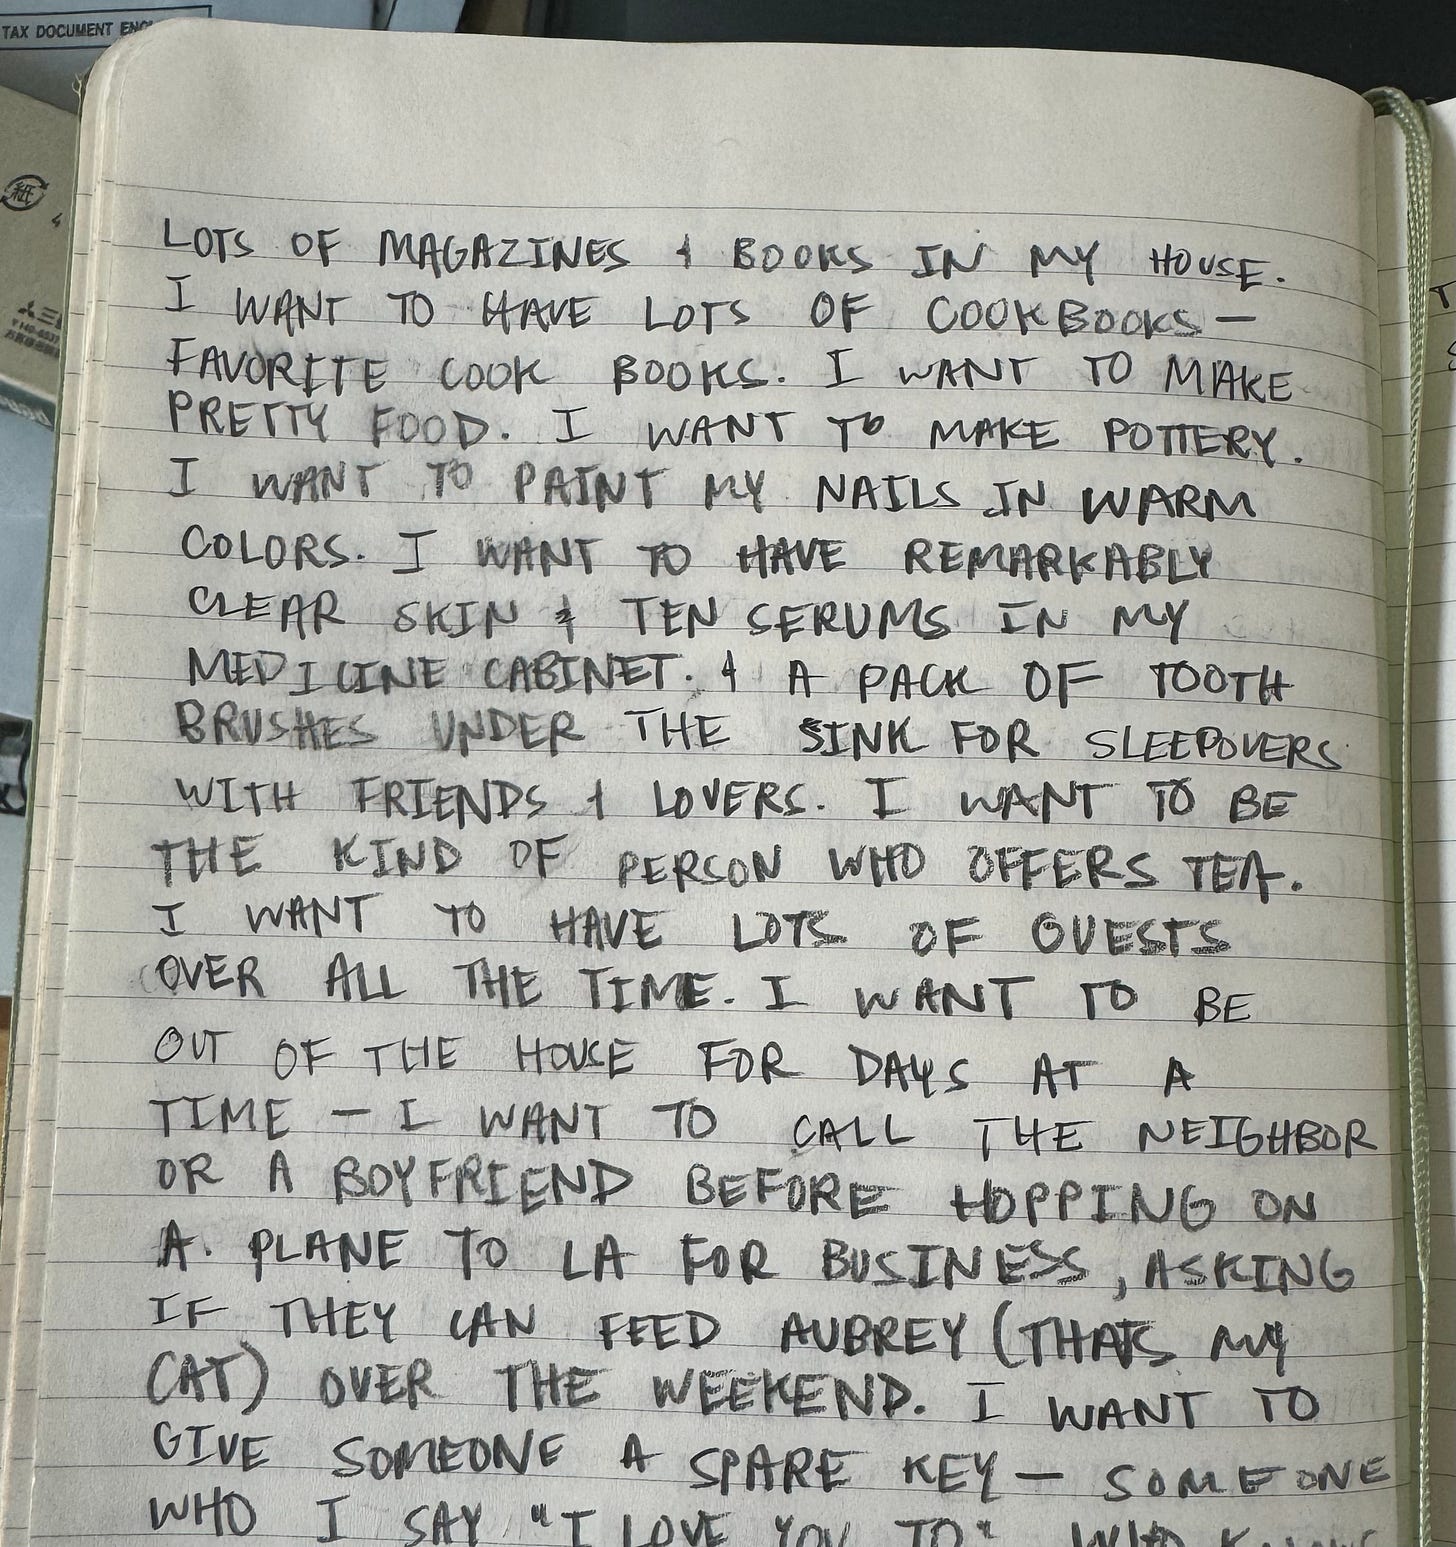 TAX DOCUMENT
紙
LOTS OF MAGAZINES & BOOKS IN MY HOUSE.
I WANT TO HAVE LOTS OF COOKBOOKS —
FAVORITE COOK BOOKS. I WANT TO MAKE
PRETTY FOOD. I WANT TO MAKE POTTERY.
I WANT TO PAINT MY NAILS IN WARM
COLORS. I WANT TO HAVE REMARKABLY
CLEAR SKIN & TEN SERUMS IN MY
MEDICINE CABINET. & A PACK OF TOOTH
BRUSHES UNDER THE SINK FOR SLEEPOVERS
WITH FRIENDS & LOVERS. I WANT TO BE
THE KIND OF PERSON WHO OFFERS TEA.
I WANT TO HAVE LOTS OF GUESTS
OVER ALL THE TIME. I WANT TO BE
OUT OF THE HOUSE FOR DAYS AT A
TIME — I WANT TO CALL THE NEIGHBOR
OR A BOYFRIEND BEFORE HOPPING ON
A PLANE TO LA FOR BUSINESS, ASKING
IF THEY CAN FEED AUBREY (THATS MY
CAT) OVER THE WEEKEND. I WANT TO
GIVE SOMEONE A SPARE KEY — SOMEONE
WHO I SAY "I LOVE YOU TO" WHO